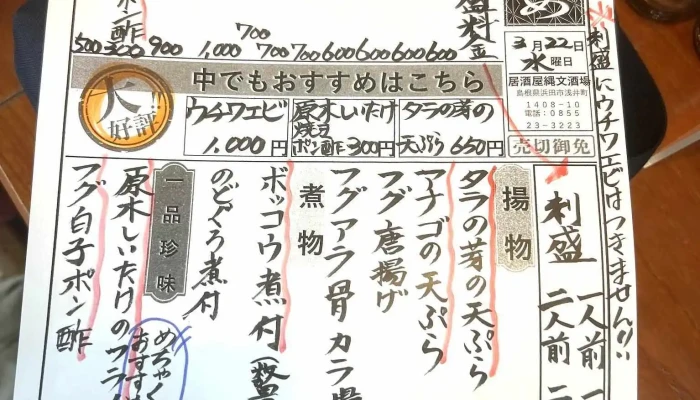 刺盛にウチワエビはつきません!!
め
3月22日
水曜日
居酒屋縄文酒場
島根県浜田市浅井町
1408-10
電話:0855
23-3223
売切御免
盛料金
ポン酢
700
500 300 900 1,000 700 700 600 600 600 600 600
中でもおすすめはこちら
大好評
ウチワエビ
1.000円
原木しいたけ
焼きポン酢 300円
タラの芽の
天ぷら 650円
刺盛 一人前
二人前
揚物
タラの芽の天ぷら
アナゴの天ぷら
フグ唐揚げ
フグアラ骨カラ揚
煮物
ボッコウ煮付
のどぐろ煮付
一品珍味
原木しいたけのフライ
めちゃく
おすすめ
フグ白子ポン酢